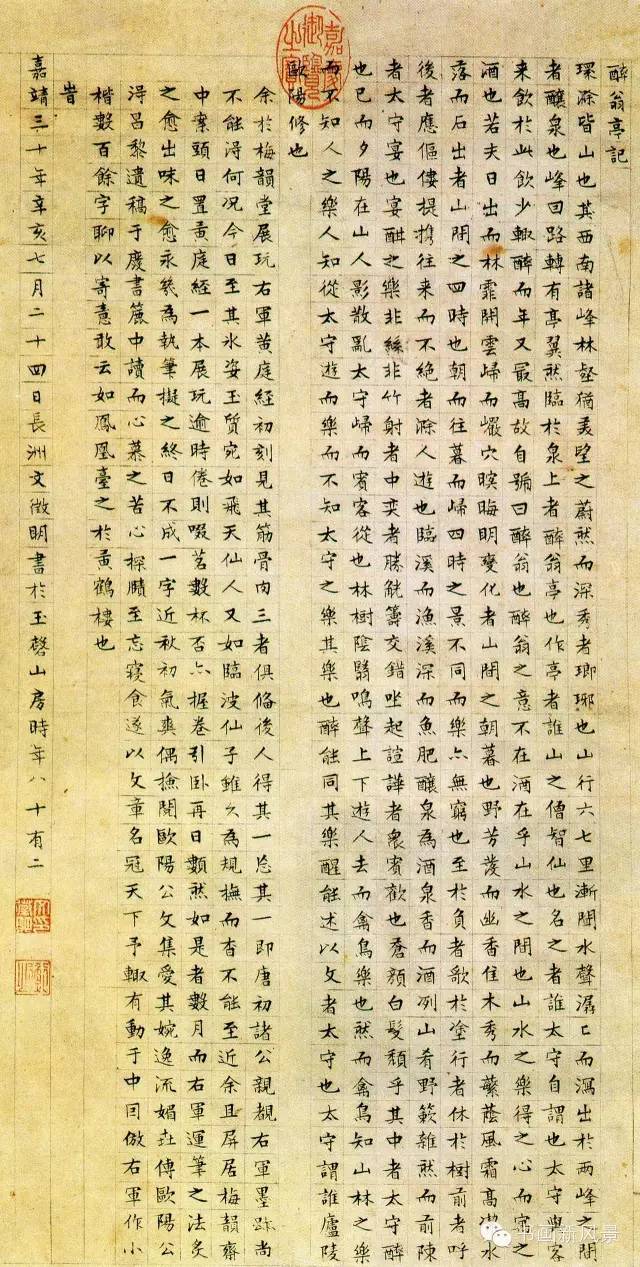 醉翁亭記
環滁皆山也其西南諸峰林壑猶美望之蔚然而深秀者瑯琊也山行六七里漸聞水聲潺〻而瀉出於兩峰之間
者釀泉也峰回路轉有亭翼然臨於泉上者醉翁亭也作亭者誰山之僧智仙也名之者誰太守自謂也太守與客
來飲於此飲少輒醉而年又最高故自號曰醉翁也醉翁之意不在酒在乎山水之間也山水之樂得之心而寓之
酒也若夫日出而林霏開雲歸而巖穴暝晦明變化者山間之朝暮也野芳發而幽香佳木秀而蘩蔭風霜高潔水
落而石出者山間之四時也朝而往暮而歸四時之景不同而樂亦無窮也至於負者歌於塗行者休於樹前者呼
後者應傴僂提攜往來而不絕者滁人遊也臨溪而漁溪深而魚肥釀泉為酒泉香而酒冽山肴野蔌雜然而前陳
者太守宴也宴酣之樂非絲非竹射者中奕者勝觥籌交錯坐起諠譁者衆賓歡也蒼顏白髮頹乎其中者太守醉
也已而夕陽在山人影散亂太守歸而賓客從也林樹陰翳鳴聲上下遊人去而禽鳥樂也然而禽鳥知山林之樂
而不知人之樂人知從太守遊而樂而不知太守之樂其樂也醉能同其樂醒能述以文者太守也太守謂誰廬陵
歐陽修也
余於梅韻堂展玩右軍黄庭經初刻見其筋骨肉三者俱俻後人得其一忘其一即唐初諸公親覩右軍墨跡尚
不能淂何况今日至其氷姿玉質宛如飛天仙人又如臨波仙子雖久為規撫而杳不能至近余且屏居梅韻齋
中案頭日置黄庭經一本展玩逾時倦則啜茗數杯否亦握卷引卧再日頽然如是者數月而右軍運筆之法炙
之愈出味之愈永幾為執筆擬之終日不成一字近秋初氣爽偶撿閱歐陽公文集愛其婉逸流媚傳歐陽公
淂昌黎遺稿于慶書簏中讀而心慕之苦心探賾至忘寢食遂以文章名冠天下予輒有動于中因倣右軍作小
楷數百餘字聊以寄意敢云如鳳凰臺之於黄鶴樓也
旹
嘉靖三十年辛亥七月二十四日長洲文徵明書於玉磬山房時年八十有二
嘉慶御覽之寶
书画新风景